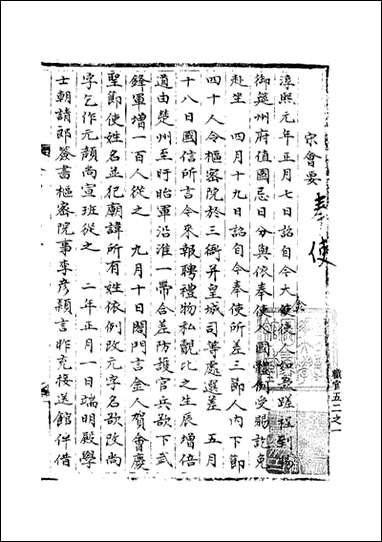 宋會要
奉使
淳熙元年正月七日詔自今大使使人如遇蹉程到
御筵州府值國忌日分與依奉使人國體例受賜訖免
赴坐　四月十九日詔自今奉使所差三節人内下節
四十人令樞密院於三衙并皇城司等處選差　五月
十八日國信所言今來報聘禮物私覿比之生辰增倍
道由楚州至盱眙軍沿淮一帶合差防護官兵欲下武
鋒軍增一百人從之　九月十日閤門言金人賀會慶
聖節使姓名並犯廟諱所有姓依例改元字名欲改尚
字乞作元顏尚宣班從之　二年正月一日端明殿學
士朝請郎簽書樞密院事李彥穎言昨充接送館伴借
職官五一之一